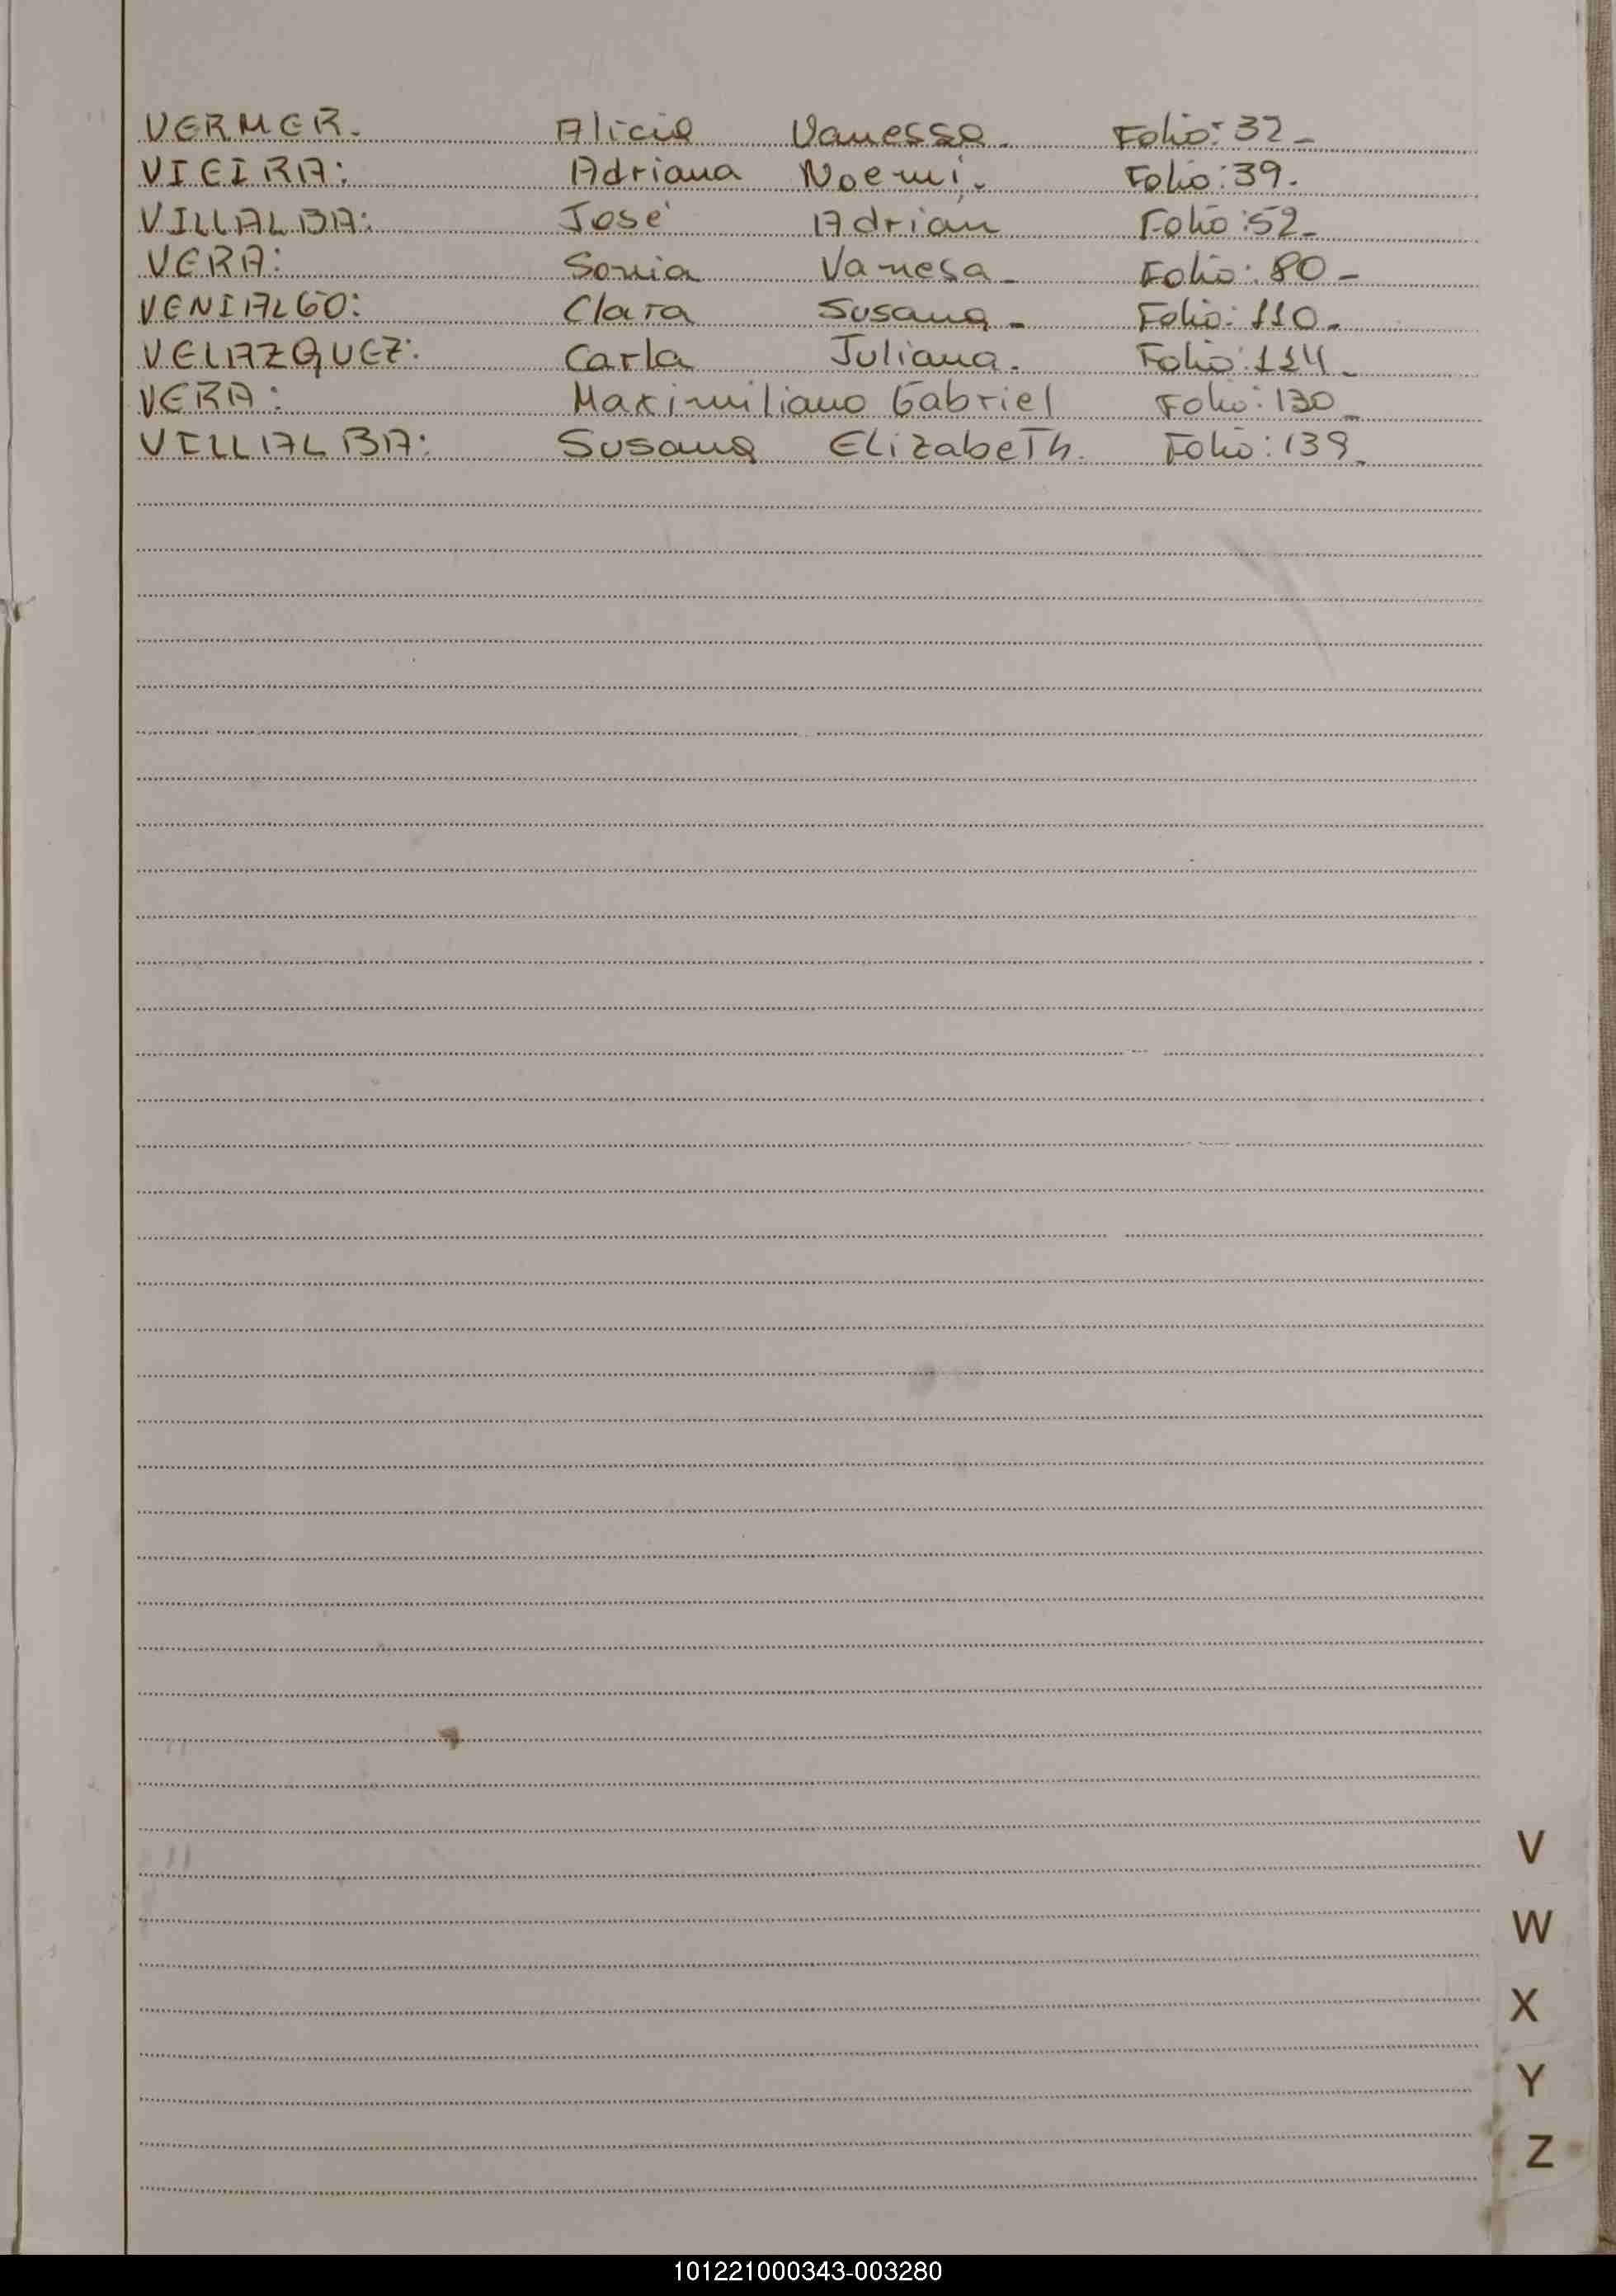 VERMER. Alicia Vanessa. Folio: 32-
VIEIRA: Adriana Noemi. Folio: 39.
VILLALBA: José Adrián Folio: 52-
VERA: Sonia Vanesa- Folio: 80-
VENIALGO: Clara Susana- Folio: 110-
VELAZQUEZ: Carla Juliana. Folio: 114-
VERA: Maximiliano Gabriel Folio: 130-
VILLALBA: Susana Elizabeth. Folio: 139-
V
W
X
Y
Z
101221000343-003280